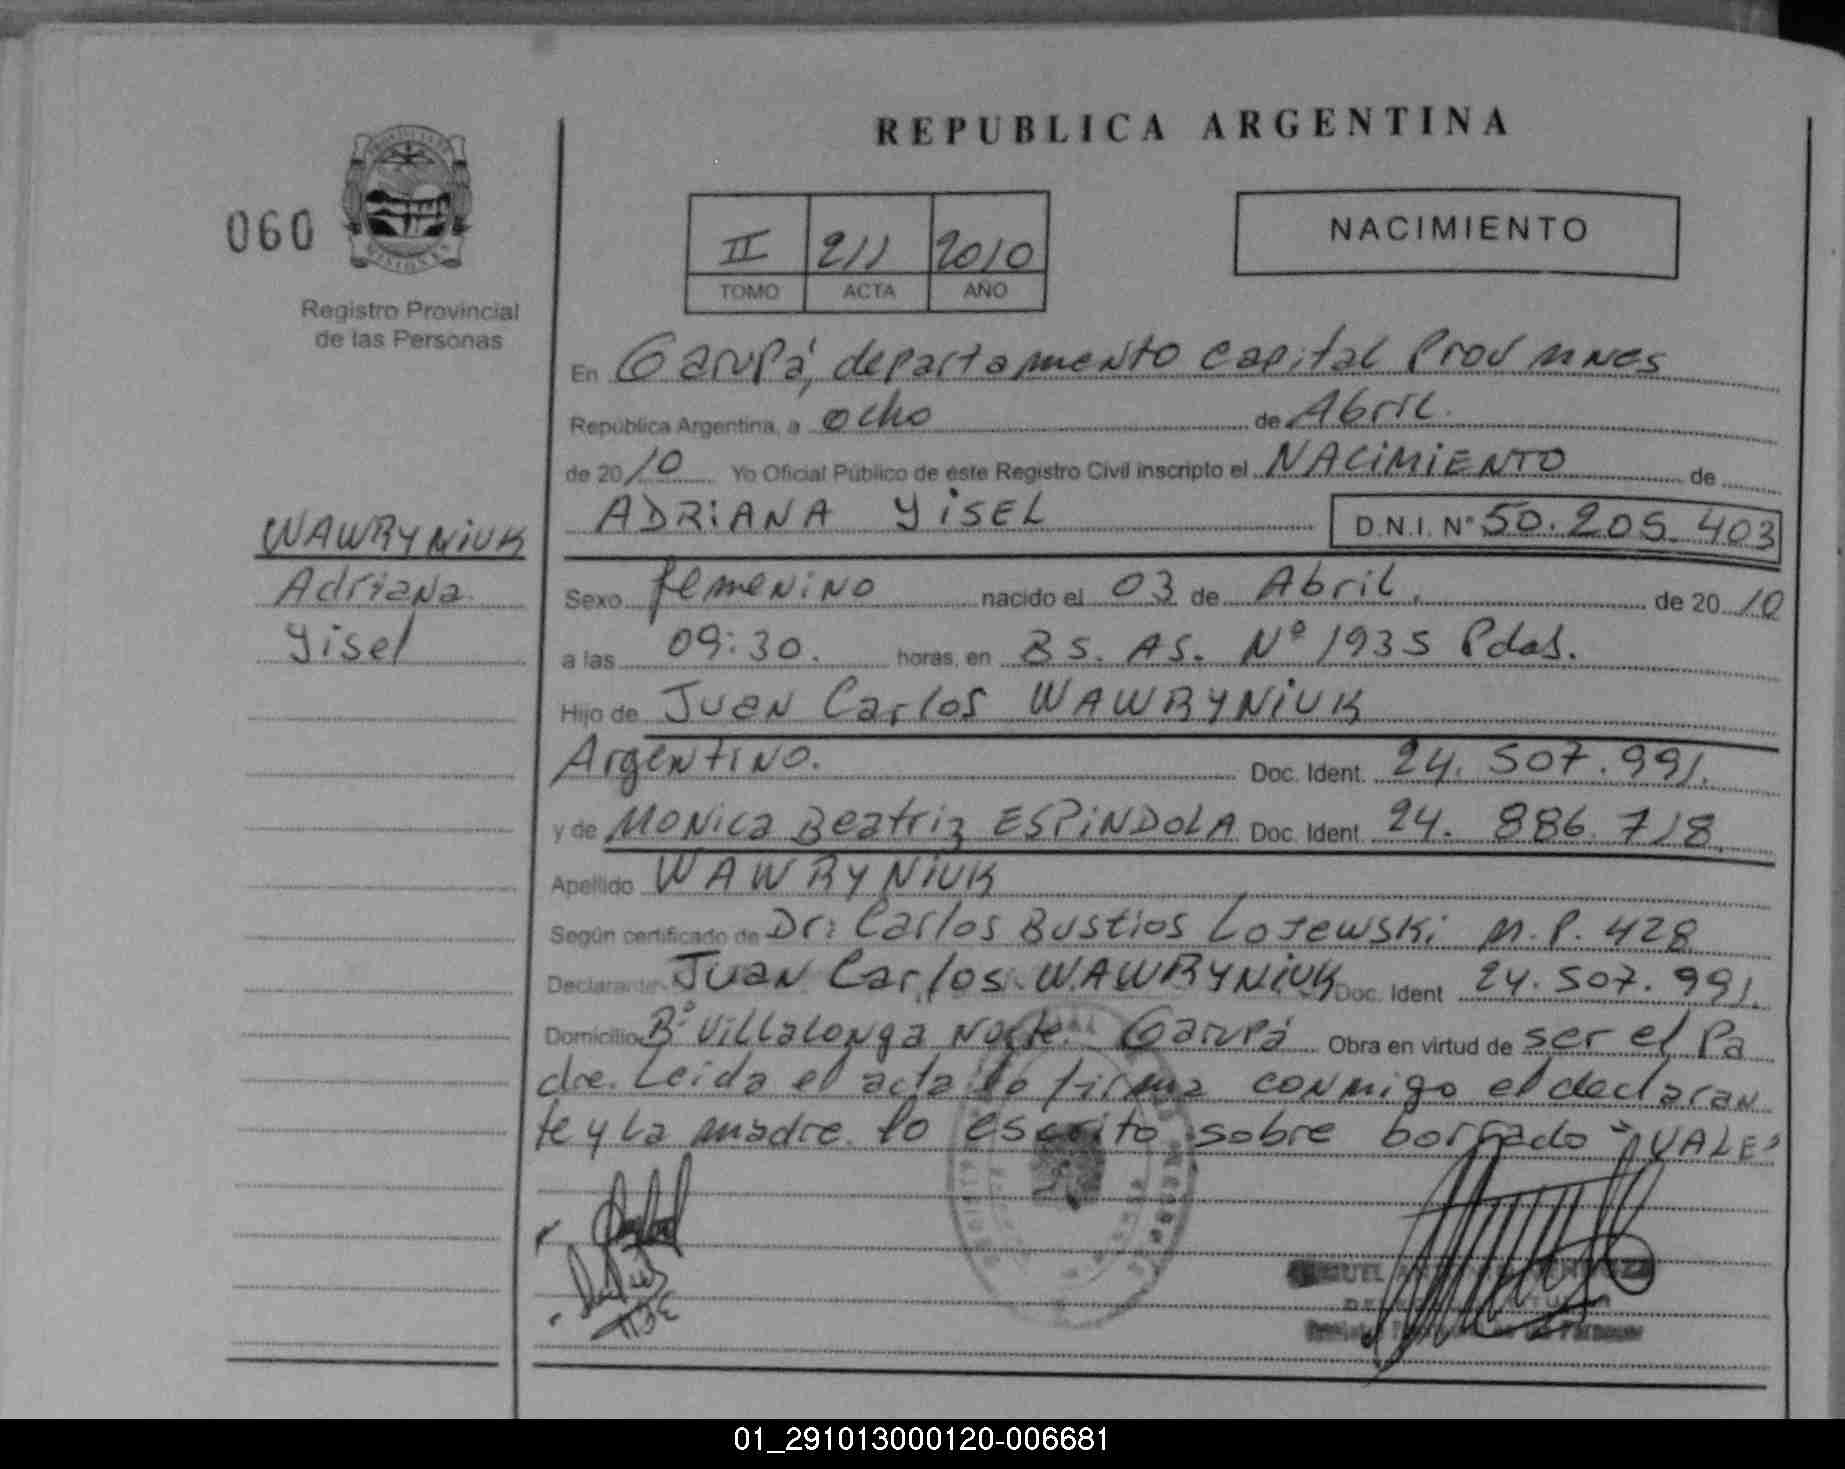 REPUBLICA ARGENTINA
060
Registro Provincial
de las Personas
II 211 2010
TOMO ACTA AÑO
NACIMIENTO
En Garupá, departamento capital Prov Mnes
República Argentina, a ocho de Abril.
de 2010 Yo Oficial Público de este Registro Civil inscripto el NACIMIENTO de
ADRIANA YISEL D.N.I. Nº 50.205.403
WAWRYNIUK
Adriana
Yisel
Sexo femenino nacido el 03 de Abril, de 2010
a las 09:30. horas, en BS. AS. Nº 1935 Pdas.
Hijo de Juan Carlos WAWRYNIUK
Argentino. Doc. Ident. 24.507.991.
y de Monica Beatriz ESPINDOLA Doc. Ident. 24.886.718.
Apellido WAWRYNIUK
Según certificado de Dr: Carlos Bustios Lojewski M.P. 428
Declarante Juan Carlos WAWRYNIUK Doc. Ident 24.507.991.
Domicilio Bº Villalonga Norte. Garupá Obra en virtud de ser el Pa
dre. Leida el acta lo firma conmigo el declaran
te y la madre. lo escrito sobre borrado "VALE"
01_291013000120-006681